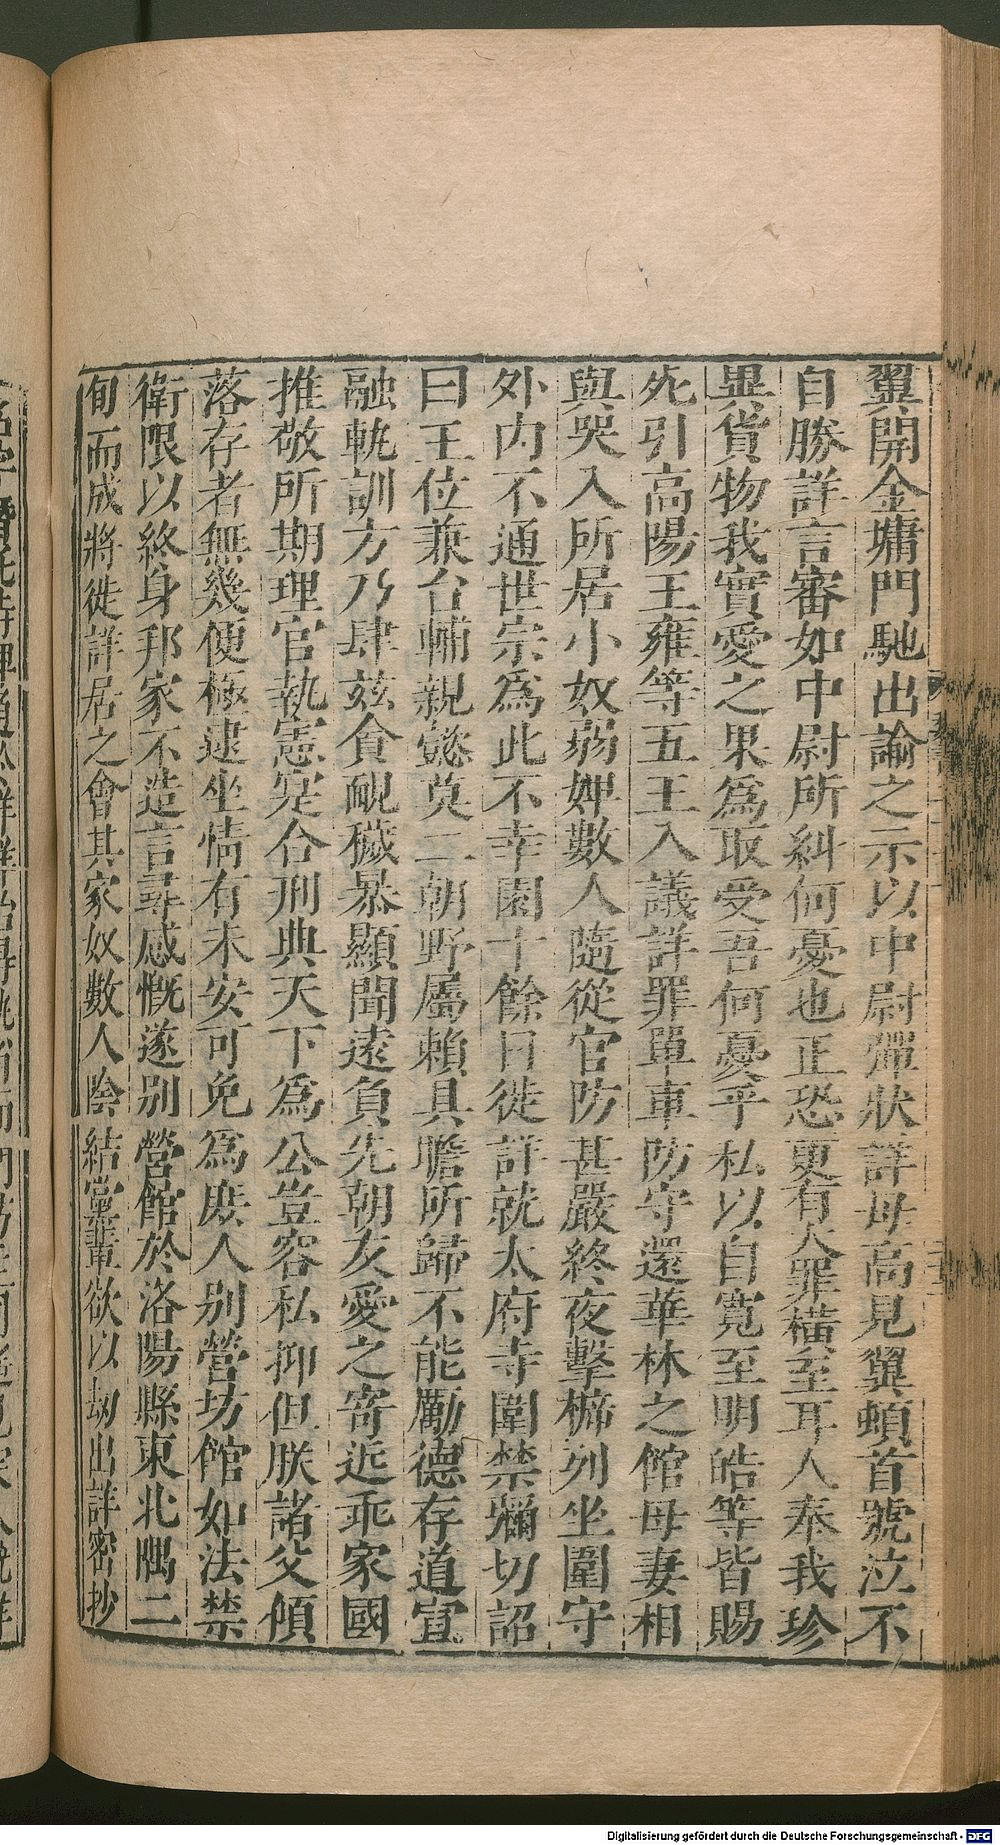 翼開金墉門馳出諭之示以中尉彈狀詳母高見翼頓首號泣不
自勝詳言審如中尉所糾何憂也正恐更有大罪橫至耳人奉我珍
異貨物我實愛之果為取受吾何憂乎私以自寬至明皓等皆賜
死引高陽王雍等五王入議詳罪單車防守還華林之館母妻相
與哭入所居小奴弱婢數人隨從官防甚嚴終夜擊柝列坐圍守
外內不通世宗為此不幸園十餘日徙詳就太府寺圍禁彌切詔
曰王位兼台輔親懿莫二朝野屬賴具瞻所歸不能勵德存道宣
融軌訓方乃肆茲貪靦穢暴顯聞遠負先朝友愛之寄近乖家國
推敬所期理官執憲寔合刑典天下為公豈容私抑但朕諸父傾
落存者無幾便極逮坐情有未安可免為庶人别營坊館如法禁
衛限以終身邦家不造言尋感慨遂别營館於洛陽縣東北隅二
旬而成將徙詳居之會其家奴數人陰結黨輩欲以劫出詳密抄
Digitalisierung gefördert durch die Deutsche Forschungsgemeinschaft - DFG